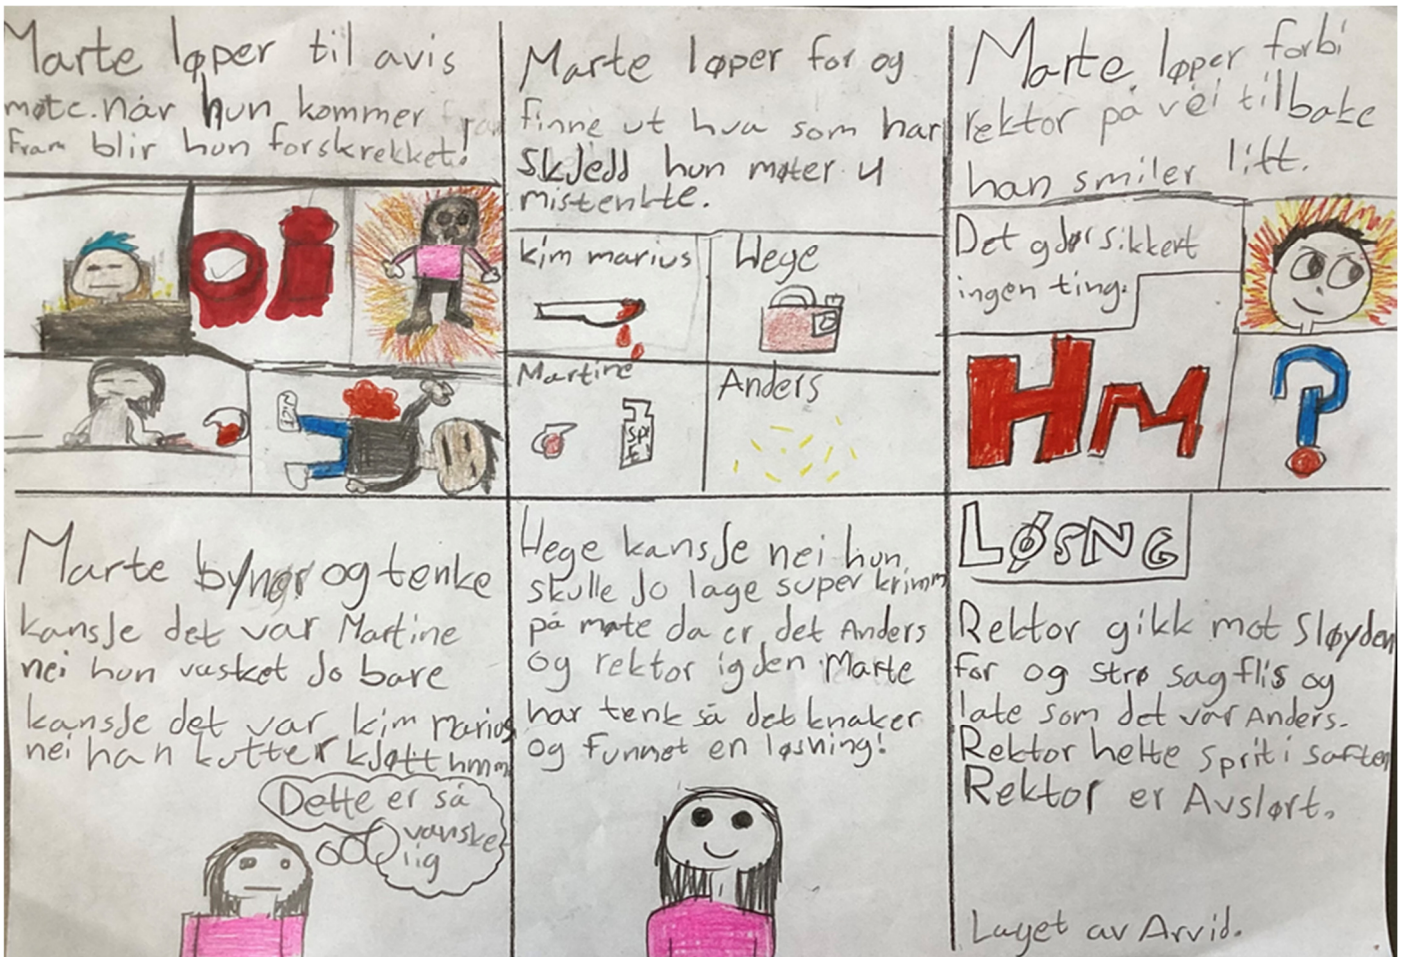 Marte løper til avis
møte. når hun kommer
fram blir hun forskrekket!
oi
Marte løper for og
finne ut hva som har
skjedd hun møter 4
mistenkte.
kim marius
Hege
Martine
Anders
Marte løper forbi
rektor på vei tilbake
han smiler litt.
Det gjør sikkert
ingen ting.
HM
?
Marte byner og tenke
kansje det var Martine
nei hun vasket jo bare
kansje det var kim marius
nei han kutter kjøtt hmm
Dette er så
vanske
lig
Hege kansje nei hun
skulle jo lage super krimm
på møte da er det Anders
og rektor igjen Marte
har tenk så det knaker
og funnet en løsning!
LØSNG
Rektor gikk mot Sløyden
for og strø sagflis og
late som det var Anders.
Rektor helte sprit i saften
Rektor er Avslørt.
Laget av Arvid.